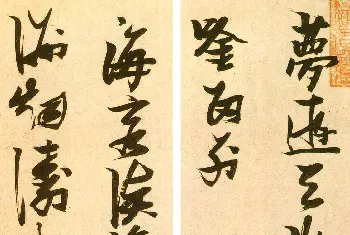 夢遊天
唫留別
海客談
洲烟濤